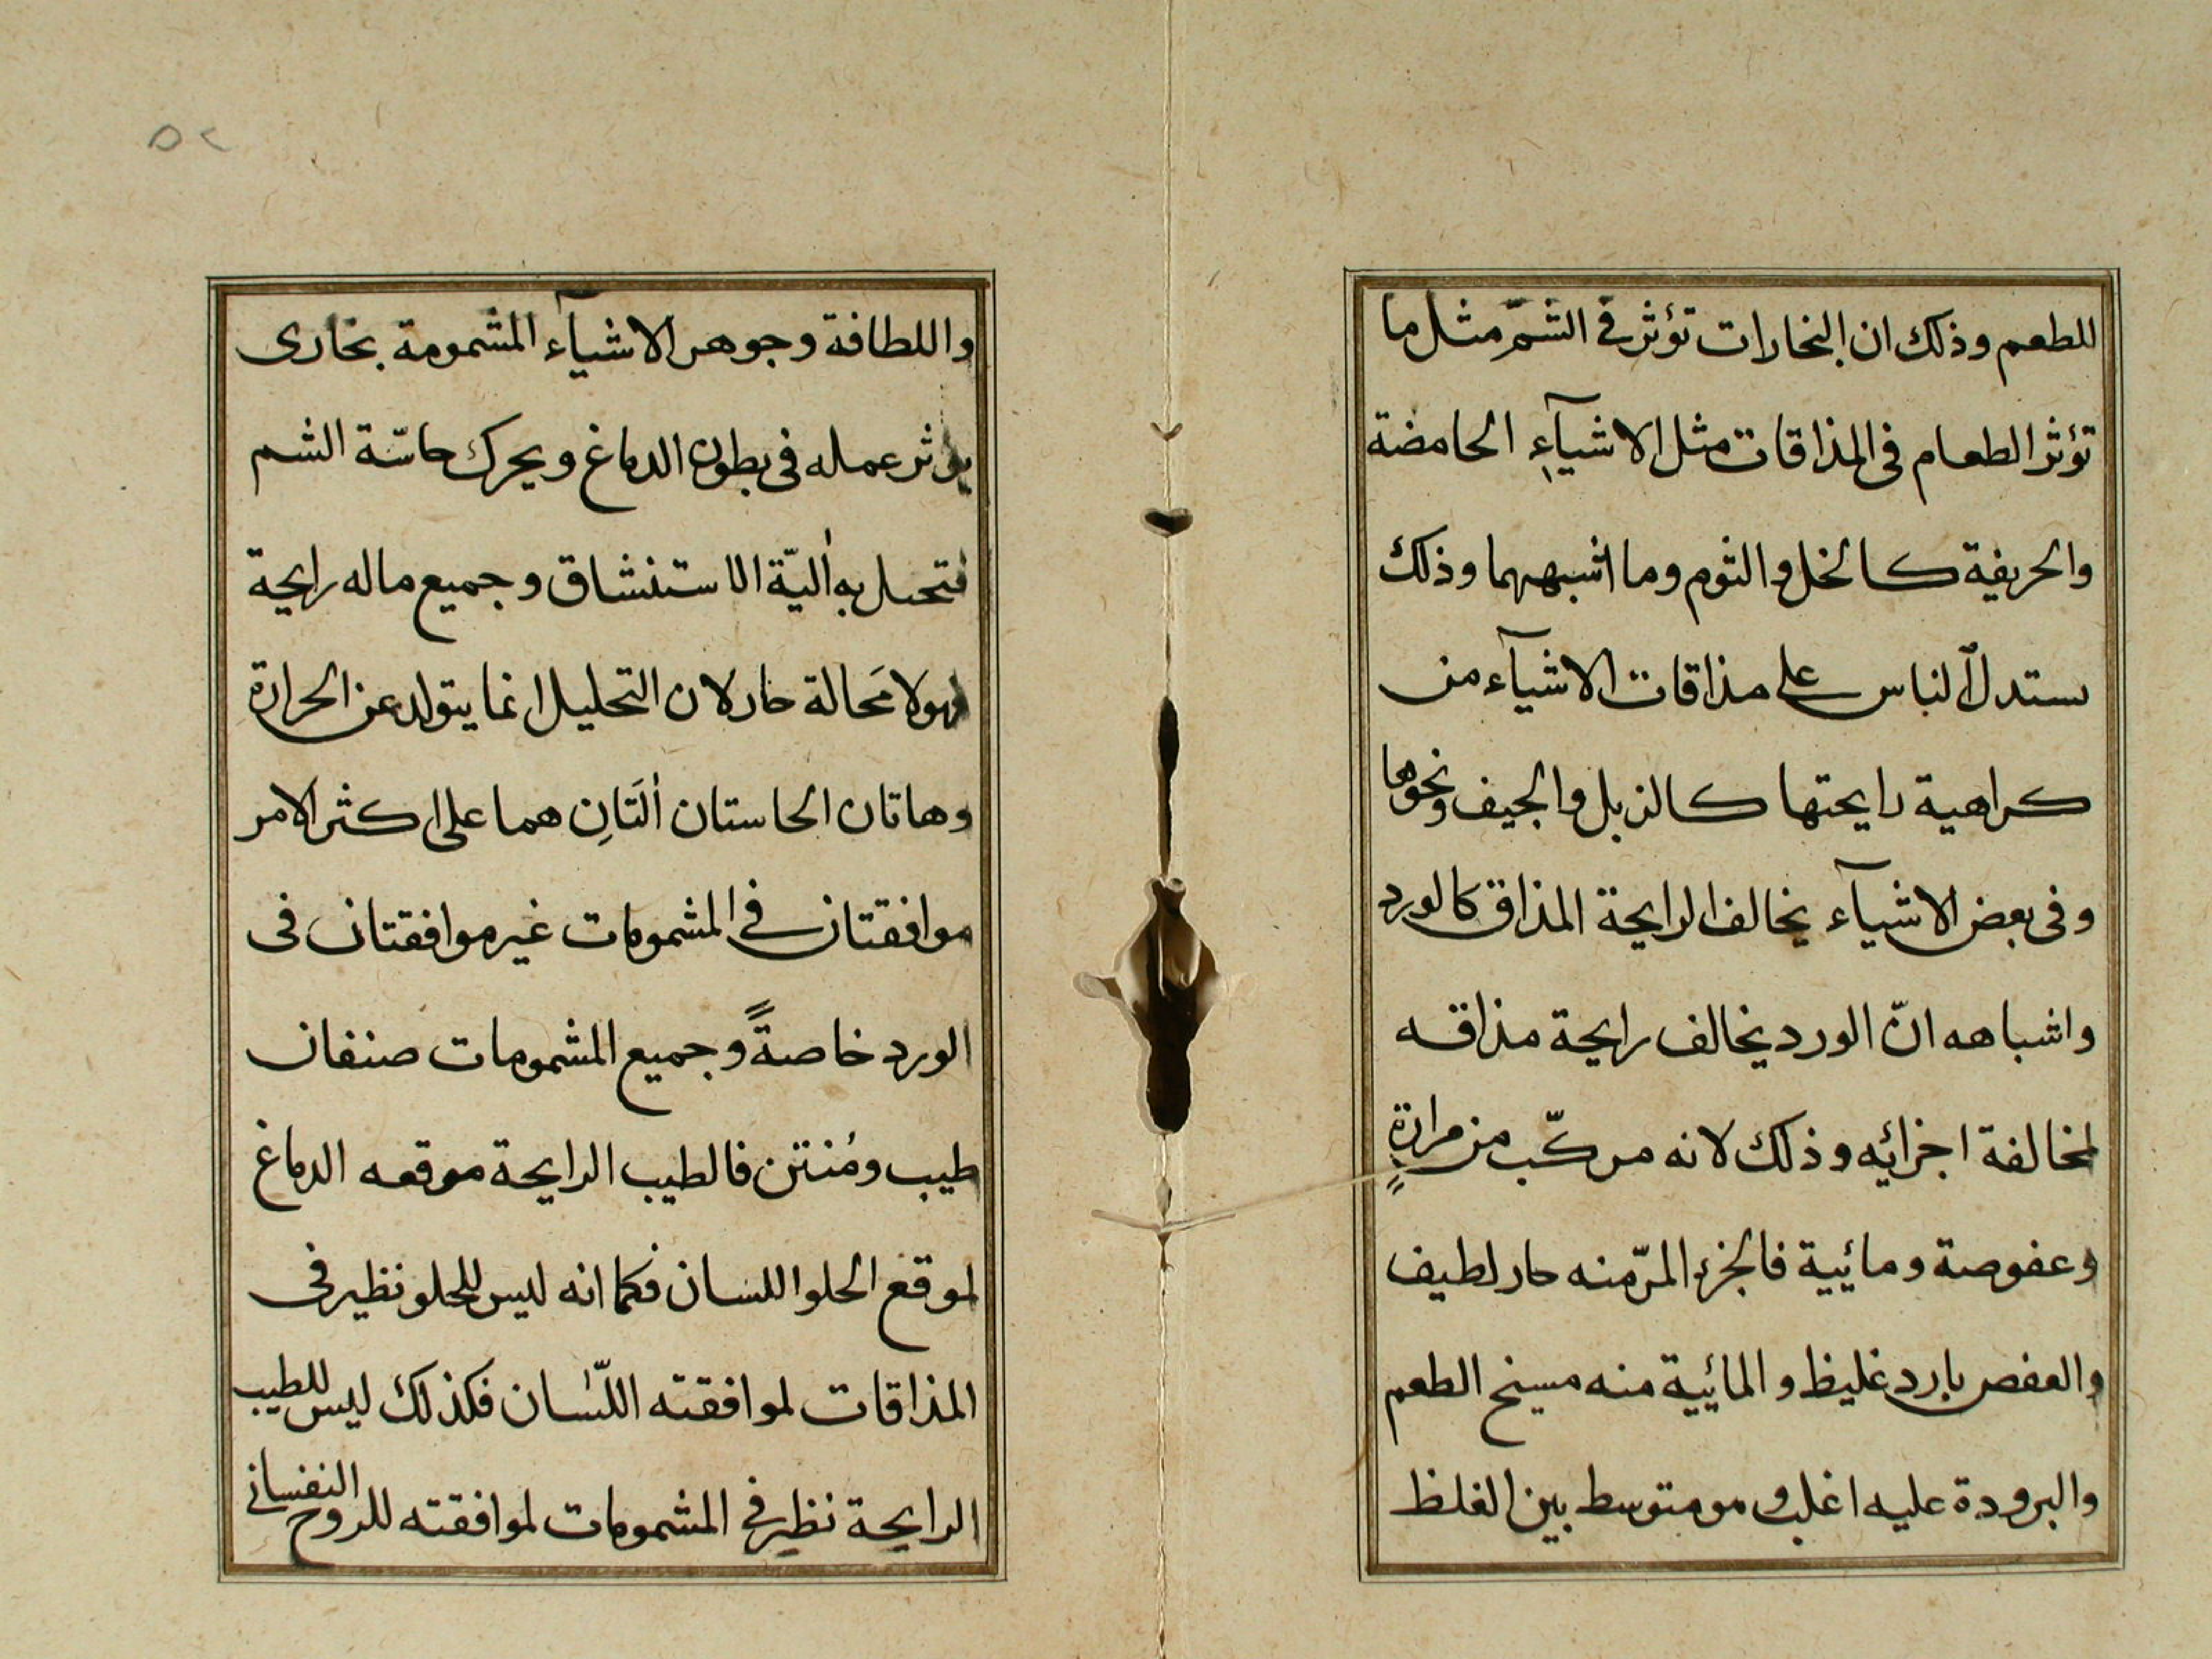 للطعم وذلك ان البخارات تؤثر فى الشمّ مثل ما
تؤثر الطعام فى المذاقات مثل الاشيآءِ الحامضة
والحريفة كالخل والثوم وما اشبههما وذلك
يستدل الناس على مذاقات الاشيآء من
كراهية رايحتها كالزبل والجيف ونحوها
وفى بعض الاشيآء يخالف الرايحة المذاق كالورد
واشباهه انّ الورد يخالف رايحة مذاقه
لمخالفة اجزائه وذلك لانه مركّب من مرارةٍ
وعفوصة ومائية فالجزء المرّ منه حار لطيف
والعفص بارد غليظ والمائية منه مسيخ الطعم
والبرودة عليه اغلب ومومتوسط بين الغلظ
٥٢
واللطافة وجوهر الاشيآء المشمومة بخارى
يؤثر عمله فى بطون الدماغ ويحرك حاسّة الشم
به أليّة الاستنشاق وجميع ماله رايحة
فهو لا مَحالة حار لان التحليل انما يتولد عن الحرارة
وهاتان الحاستان ألتَانِ هما على اكثر الامر
موافقتان فى المشمومات غير موافقتان فى
الورد خاصةً وجميع المشمومات صنفان
طيب ومُنتن فالطيب الرايحة موقعه الدماغ
لموقع الحلو اللسان فكما انه ليس للحلو نظير فى
المذاقات لموافقته اللّسان فكذلك ليس للطيب
الرايحة نظير فى المشمومات لموافقته للروح النفسانى